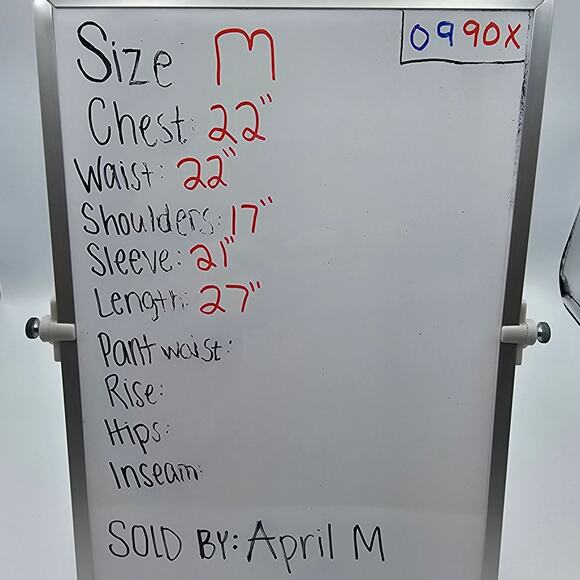 0990X
Size M
Chest: 22"
Waist: 22"
Shoulders: 17"
Sleeve: 21"
Length: 27"
Pant waist:
Rise:
Hips:
Inseam:
SOLD BY: April M